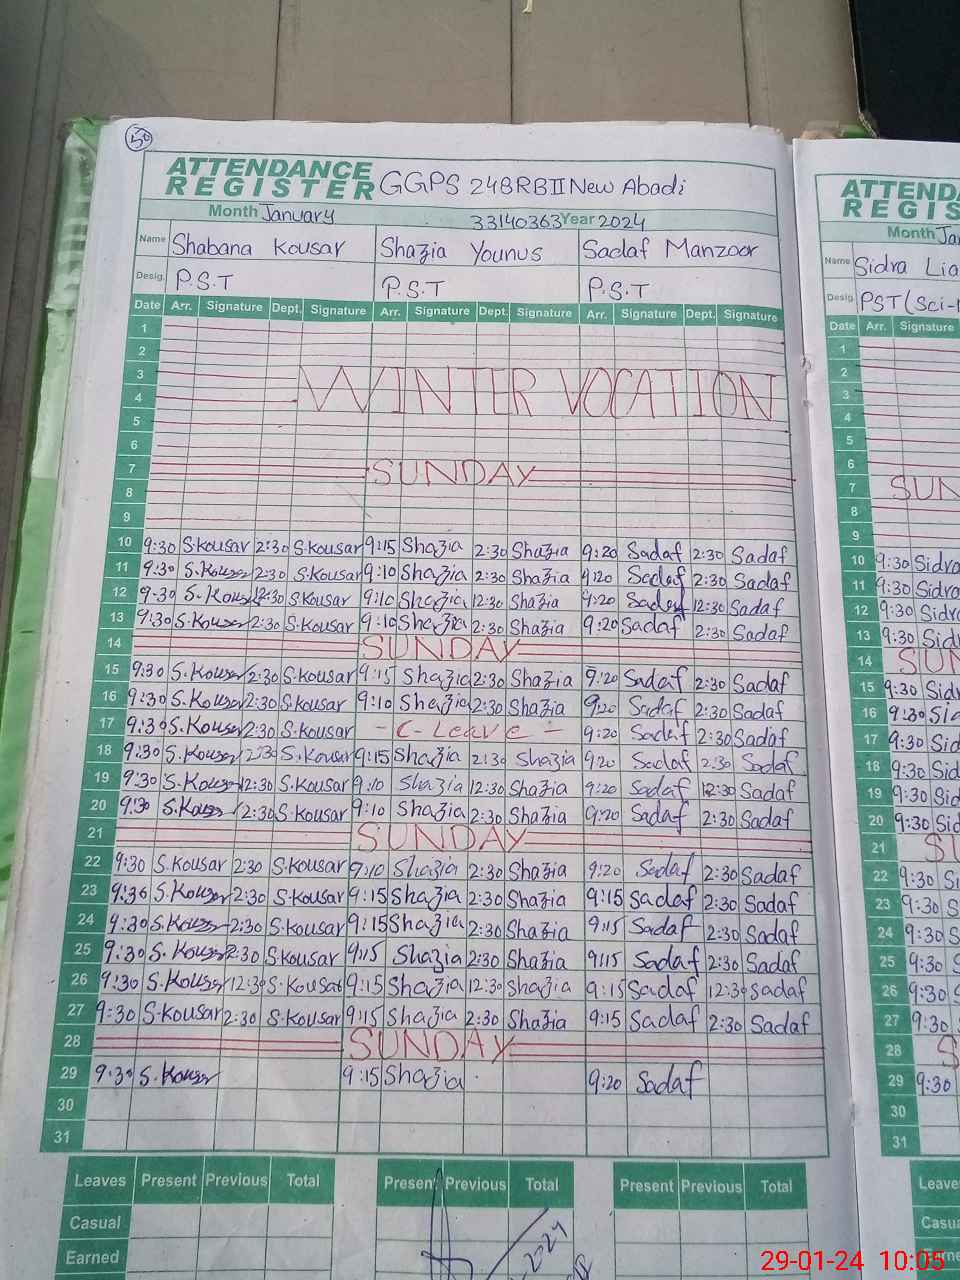 50
ATTENDANCE REGISTER GGPS 248RBII New Abadi
Month January 33140363 Year 2024
Name Shabana Kousar Shazia Younus Sadaf Manzoor
Desig. P.S.T P.S.T P.S.T
Date Arr. Signature Dept. Signature Arr. Signature Dept. Signature Arr. Signature Dept. Signature
1
2
3 WINTER VOCATION
4
5
6
7 SUNDAY
8
9
10 9:30 S.Kousar 2:30 S.Kousar 9:15 Shazia 2:30 Shazia 9:20 Sadaf 2:30 Sadaf
11 9:30 S.Kousar 2:30 S.Kousar 9:10 Shazia 2:30 Shazia 9:20 Sadaf 2:30 Sadaf
12 9:30 S.Kousar 12:30 S.Kousar 9:10 Shazia 12:30 Shazia 9:20 Sadaf 12:30 Sadaf
13 9:30 S.Kousar 2:30 S.Kousar 9:10 Shazia 2:30 Shazia 9:20 Sadaf 2:30 Sadaf
14 SUNDAY
15 9:30 S.Kousar 2:30 S.Kousar 9:15 Shazia 2:30 Shazia 9:20 Sadaf 2:30 Sadaf
16 9:30 S.Kousar 2:30 S.Kousar 9:10 Shazia 2:30 Shazia 9:20 Sadaf 2:30 Sadaf
17 9:30 S.Kousar 2:30 S.Kousar - C-Leave - 9:20 Sadaf 2:30 Sadaf
18 9:30 S.Kousar 2:30 S.Kousar 9:15 Shazia 2:30 Shazia 9:20 Sadaf 2:30 Sadaf
19 9:30 S.Kousar 12:30 S.Kousar 9:10 Shazia 12:30 Shazia 9:20 Sadaf 12:30 Sadaf
20 9:30 S.Kousar 2:30 S.Kousar 9:10 Shazia 2:30 Shazia 9:20 Sadaf 2:30 Sadaf
21 SUNDAY
22 9:30 S.Kousar 2:30 S.Kousar 9:10 Shazia 2:30 Shazia 9:20 Sadaf 2:30 Sadaf
23 9:30 S.Kousar 2:30 S.Kousar 9:15 Shazia 2:30 Shazia 9:15 Sadaf 2:30 Sadaf
24 9:30 S.Kousar 2:30 S.Kousar 9:15 Shazia 2:30 Shazia 9:15 Sadaf 2:30 Sadaf
25 9:30 S.Kousar 2:30 S.Kousar 9:15 Shazia 2:30 Shazia 9:15 Sadaf 2:30 Sadaf
26 9:30 S.Kousar 12:30 S.Kousar 9:15 Shazia 12:30 Shazia 9:15 Sadaf 12:30 Sadaf
27 9:30 S.Kousar 2:30 S.Kousar 9:15 Shazia 2:30 Shazia 9:15 Sadaf 2:30 Sadaf
28 SUNDAY
29 9:30 S.Kousar 9:15 Shazia 9:20 Sadaf
30
31
Leaves Present Previous Total Present Previous Total Present Previous Total
Casual
Earned
ATTENDA
REGIS
Month Jan
Name Sidra Lia
Desig. PST(Sci-
Date Arr. Signature
1
2
3
4
5
6
7 SUN
8
9
10 9:30 Sidra
11 9:30 Sidra
12 9:30 Sidra
13 9:30 Sid
14 SUN
15 9:30 Sidr
16 9:30 Sid
17 9:30 Sid
18 9:30 Sid
19 9:30 Sid
20 9:30 Sid
21 SU
22 9:30 Sid
23 9:30 S
24 9:30 S
25 9:30 S
26 9:30 S
27 9:30
28 S
29 9:30
30
31
Leave
Casua
29-01-24 10:05